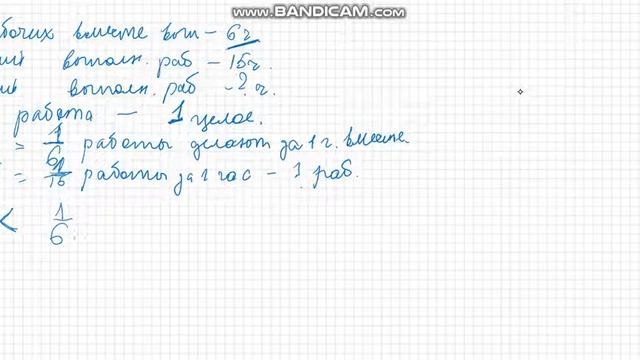 www.BANDICAM.com
бочих вместе вып – 6ч
выполн. раб – 15ч.
выполн. раб – ? ч.
работа — 1 целое.
= 1/6 работы делают за 1 ч. вместе
= 1/15 работы за 1 час – 1 раб.
< 1/6